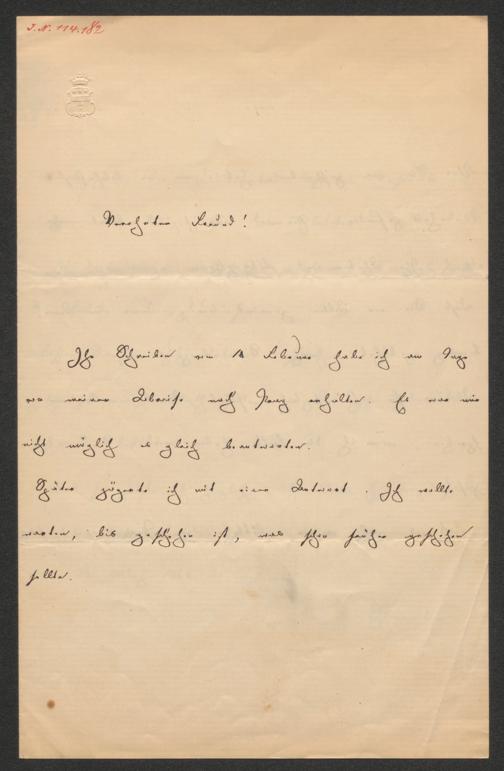 J. N. 114.182
Verehrter Freund!
Ihr Schreiben vom 14 Februar habe ich am Tage
vor meiner Abreise nach Prag erhalten. Es war mir
nicht möglich es gleich beantworten.
Später zögerte ich mit einer Antwort. Ich wollte
warten, bis geschehen ist, was schon früher geschehen
sollte.